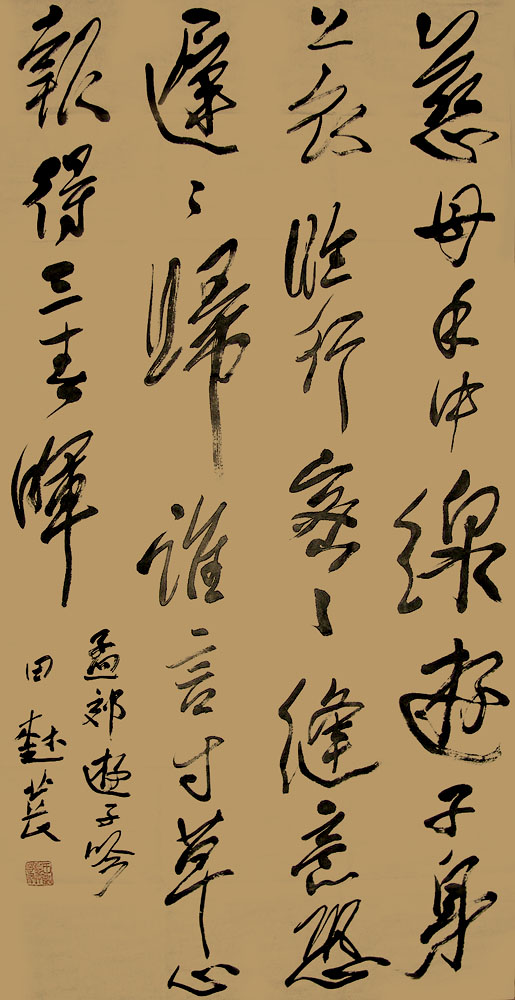 慈母手中線遊子身
上衣臨行密々縫意恐
遲々歸誰言寸草心
報得三春暉
孟郊遊子吟
田樹萇